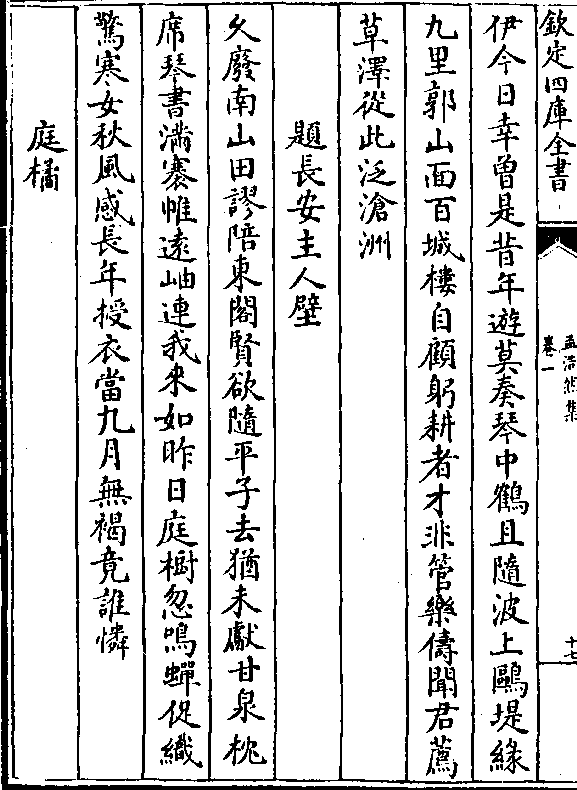 欽定四庫全書
孟浩然集
卷一
十七
伊今日幸曾是昔年遊莫奏琴中鶴且隨波上鷗堤緣
九里郭山面百城樓自顧躬耕者才非管樂儔聞君薦
草澤從此泛滄洲
題長安主人壁
久廢南山田謬陪東閣賢欲隨平子去猶未獻甘泉枕
席琴書滿褰帷遠岫連我來如昨日庭樹忽鳴蟬促織
驚寒女秋風感長年授衣當九月無褐竟誰憐
庭橘